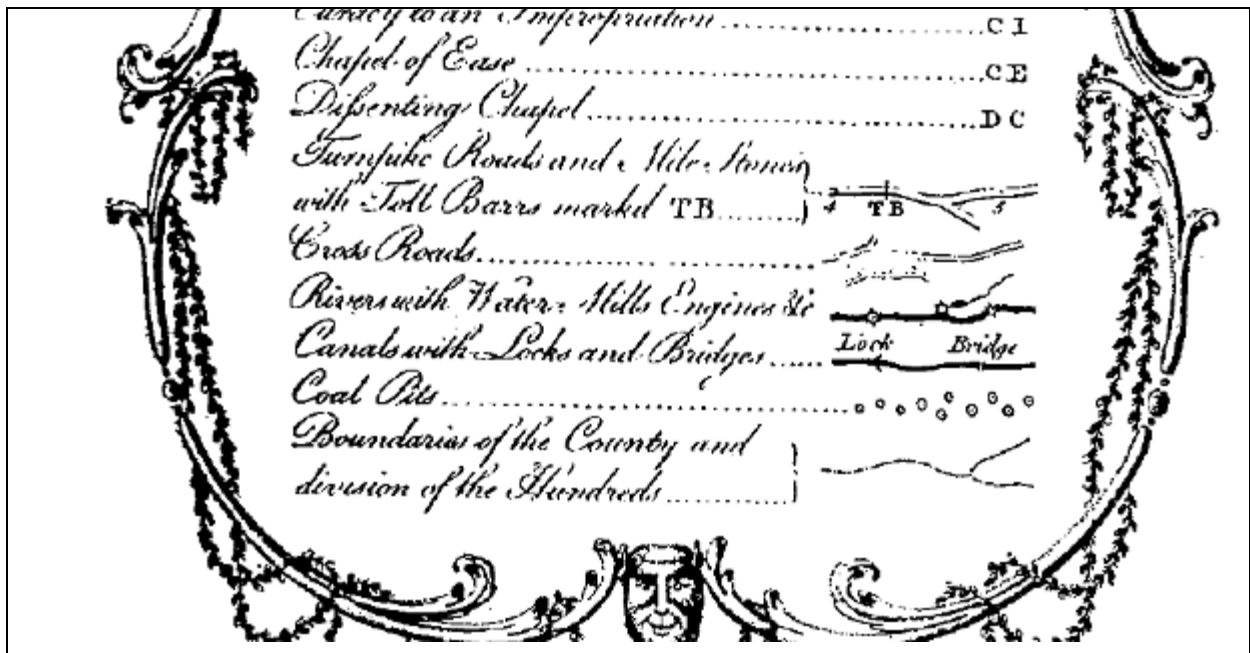 Curacy to an Impropriation ........ C I
Chapel of Ease ........ C E
Dissenting Chapel ........ D C
Turnpike Roads and Mile Stones
with Toll Barrs markd TB ........ 4 TB 5
Cross Roads ........
Rivers with Water Mills Engines &c
Canals with Locks and Bridges ........ Lock Bridge
Coal Pits ........
Boundaries of the County and
division of the Hundreds ........